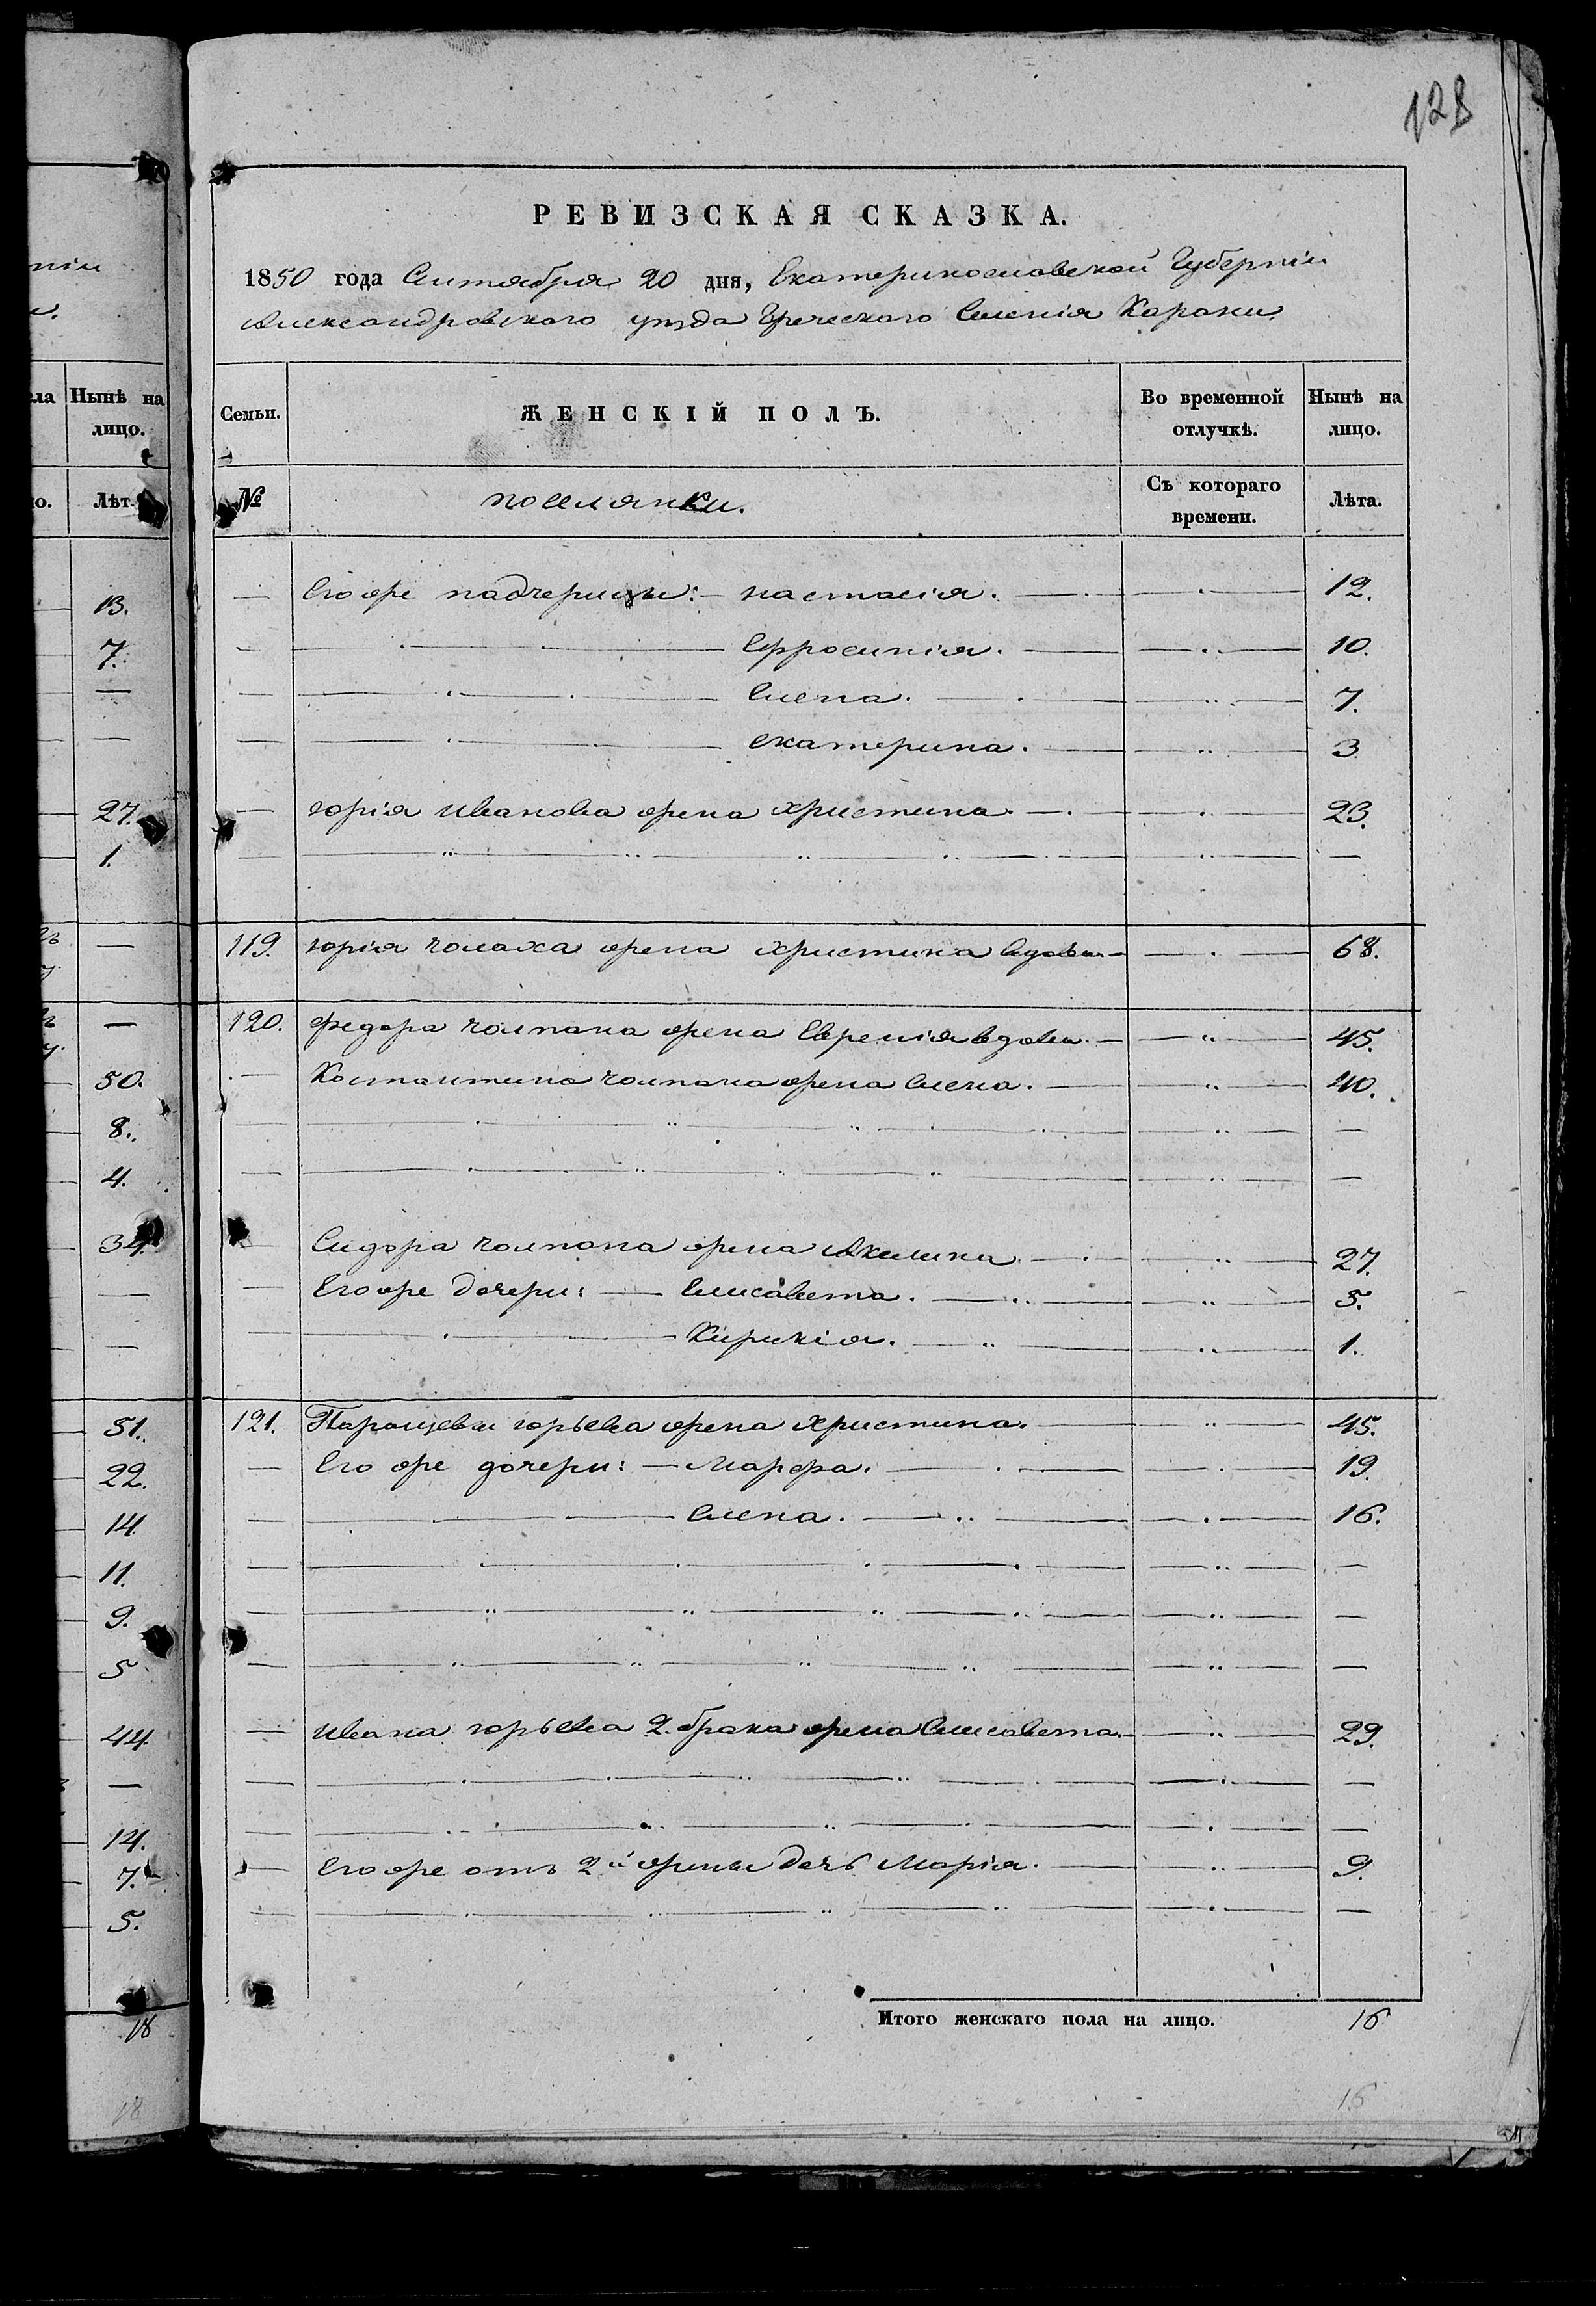 128
РЕВИЗСКАЯ СКАЗКА.
1850 года Сентября 20 дня, Екатеринославской Губерніи
Александровскаго уѣзда Греческаго Селенія Карани
Семьи.
ЖЕНСКІЙ ПОЛЪ.
Во временной отлучкѣ.
Нынѣ на лицо.
№
поселянки.
Съ котораго времени.
Лѣта.
Его же падчерицы: настасія. 12.
Ефросинія. 10.
Елена. 7.
екатерина. 3
юрія иванова жена христина. 23.
119. юрія чолаха жена христина вдова 68.
120. федора чолпана жена Евгенія вдова 45.
Костантина чолпана жена Елена. 40.
Сидора чолпана жена Акилина 27.
Его же дочери: Елисавета. 5.
Кирикія. 1.
121. Паращева юрьева жена христина. 45.
Его же дочери: Марфа. 19.
Елена. 16.
ивана юрьева 2. брака жена Елисавета. 29.
Его же отъ 2й жены дочь Марія. 9.
Итого женскаго пола на лицо. 16
16
Нынѣ на лицо.
Лѣт.
13.
7.
27.
1.
50.
8.
4.
34.
51.
22.
14.
11.
9.
5
44.
14.
7.
5.
18
18